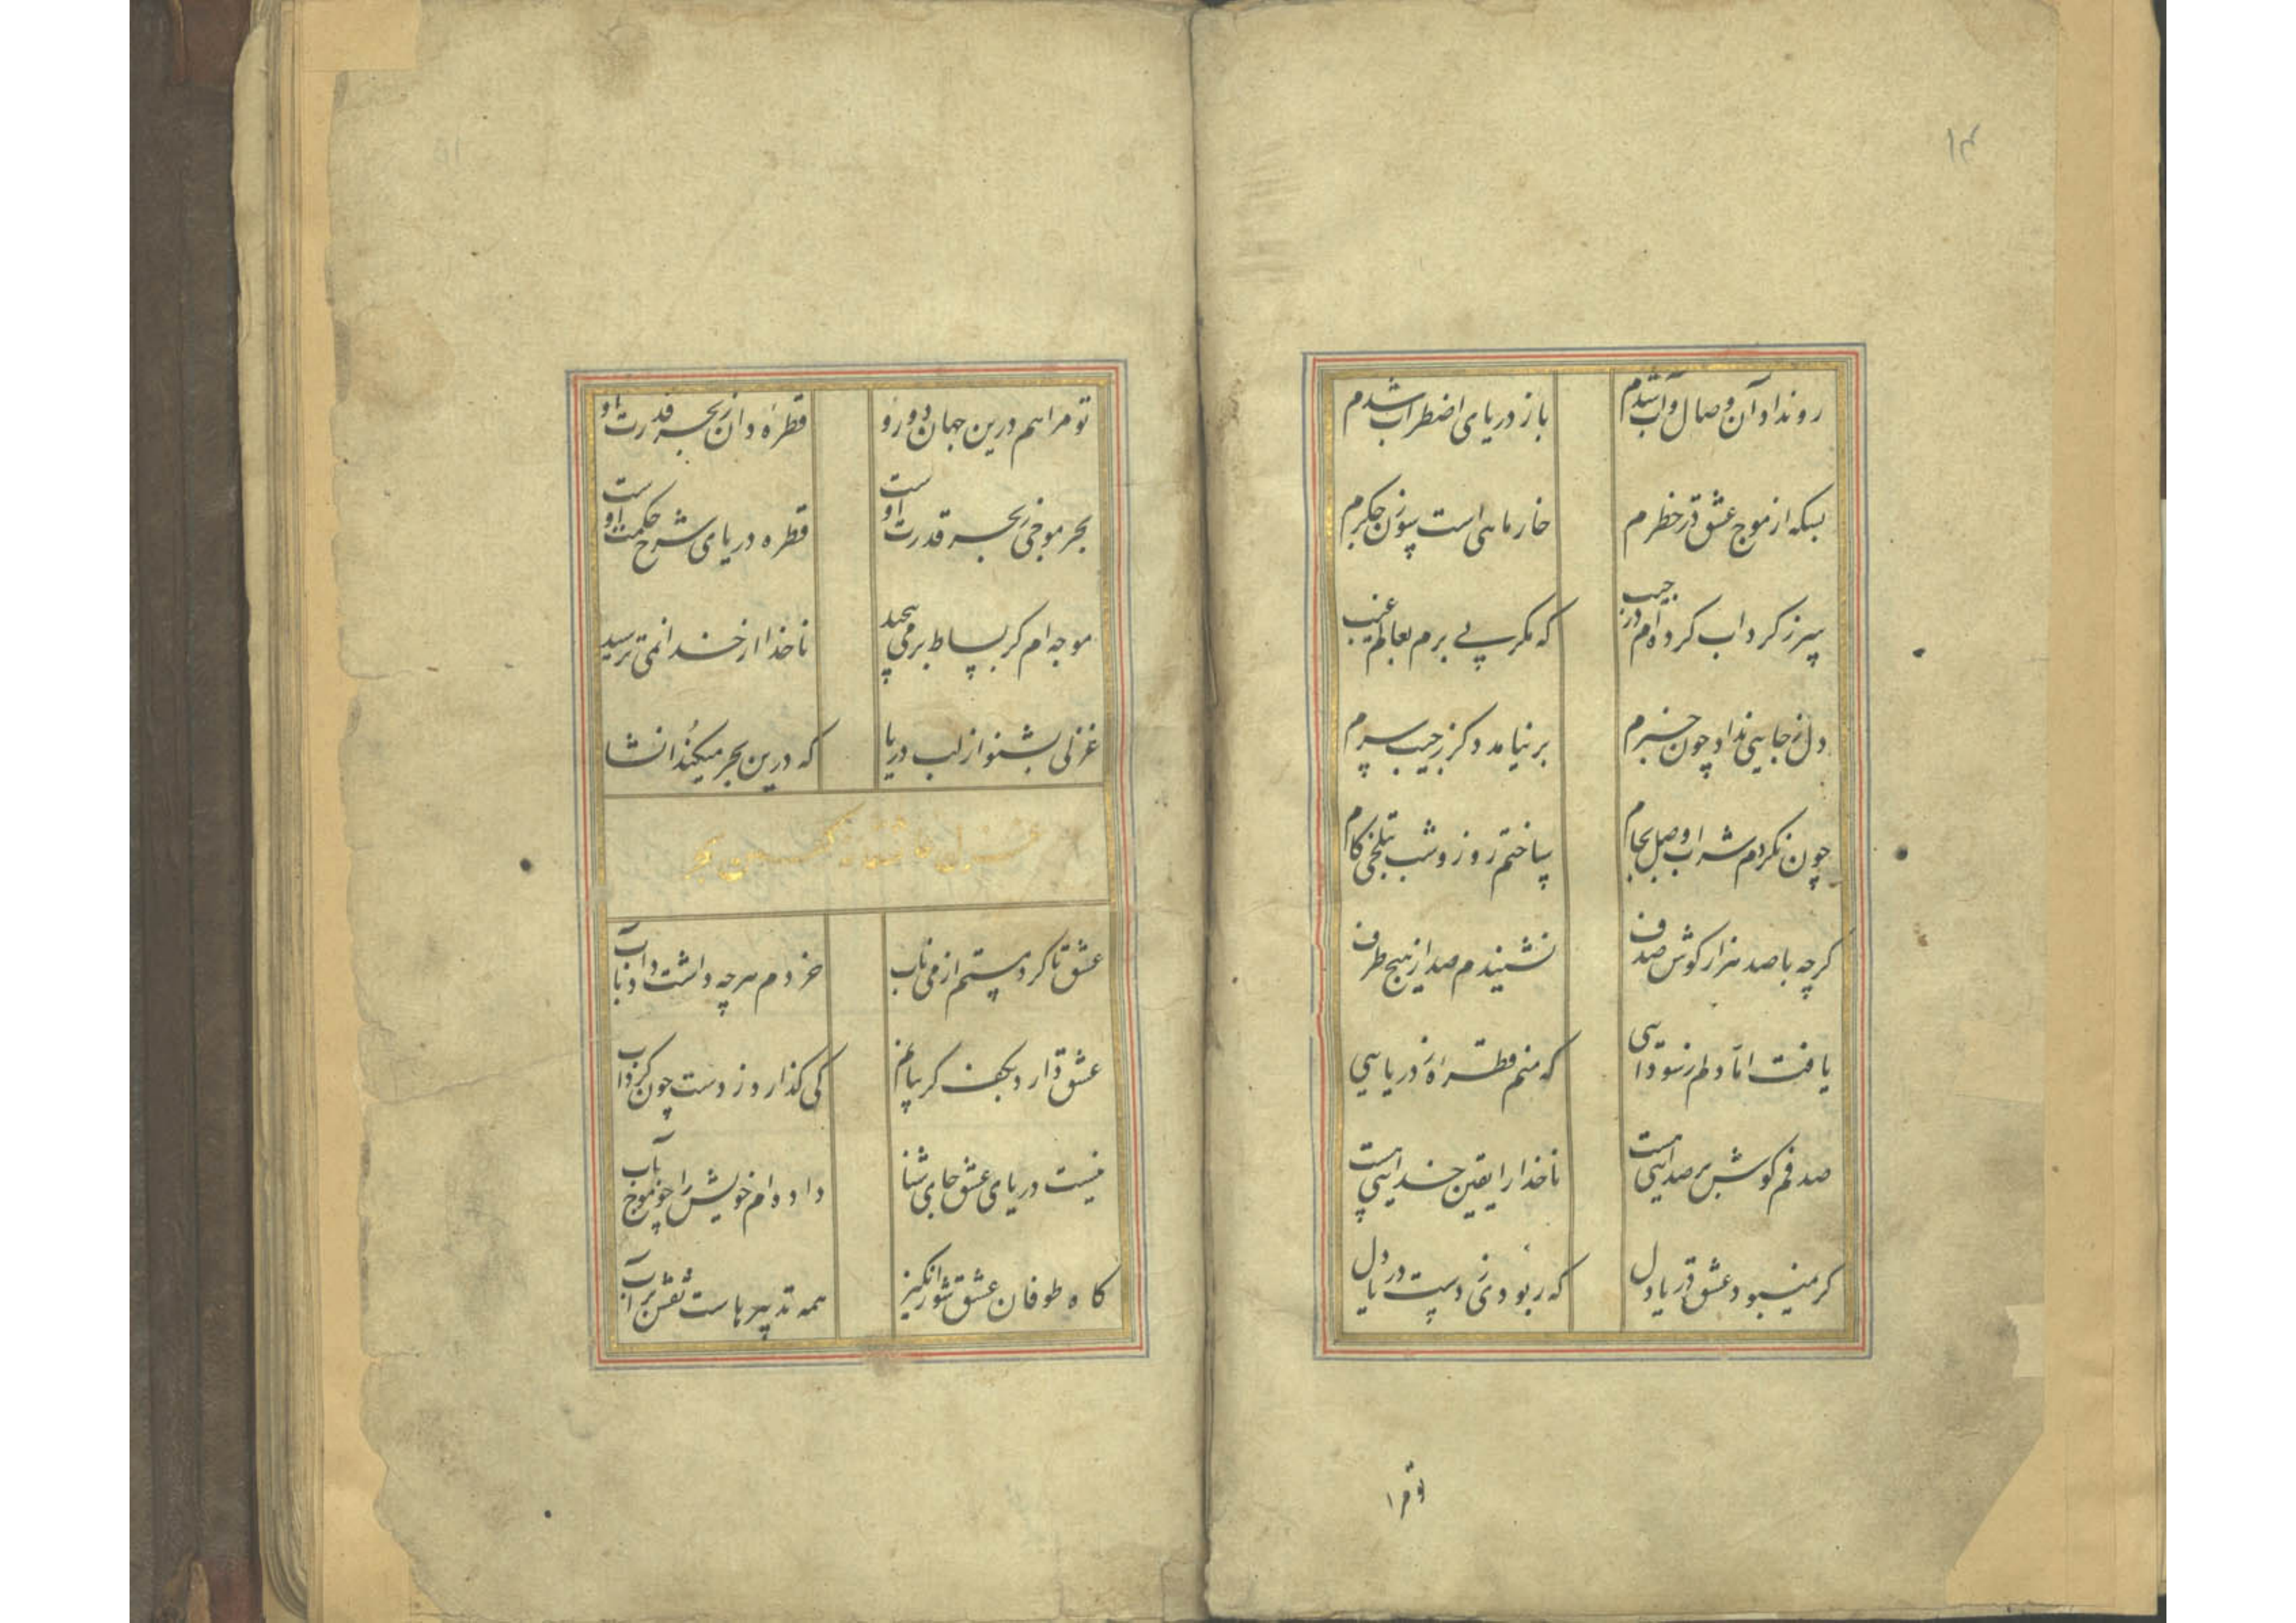 ۱۴
رو نداد آن وصال و آب شدم باز دریای اضطراب شدم
بسکه از موج عشق در خطرم خار ماهی است سوزن جکرم
سر ز کرداب کرده‌ام در جیب که مکر پی برم بعالم غیب
دل ز جایی نداد چون خبرم بر نیامد دکر ز جیب سرم
چون نکردم شراب وصل بجام ساختم روز و شب بتلخی کام
کرچه با صد هزار کوش صدف نشنیدم صدا ز هیچ طرف
یافت اما دلم ز سودایی که منم قطرهٔ ز دریایی
صدفم کوش بر صدایی هست ناخدا را یقین خدایی هست
کر نمیبود عشق در یا دل که ربودی ز دست دریا دل
تو مرا
تو مرا هم درین جهان دو رو قطرهٔ دان ز بحر قدرت او
بحر موجی ز بحر قدرت اوست قطره دریای شرح حکمت اوست
موجه‌ام کر بساط بر می‌چید ناخدا از خدا نمی‌ترسید
غزلی بشنو از لب دریا که درین بحر میکند انشا
عشق تا کرد مستم از می ناب خردم هرچه داشت داد بآب
عشق دارد بکف کریبانم کی کذارد ز دست چون کرداب
نیست دریای عشق جای شنا داده‌ام خویش را چو موج بآب
کاه طوفان عشق شورانکیز همه تدبیرهاست نقش بر آب